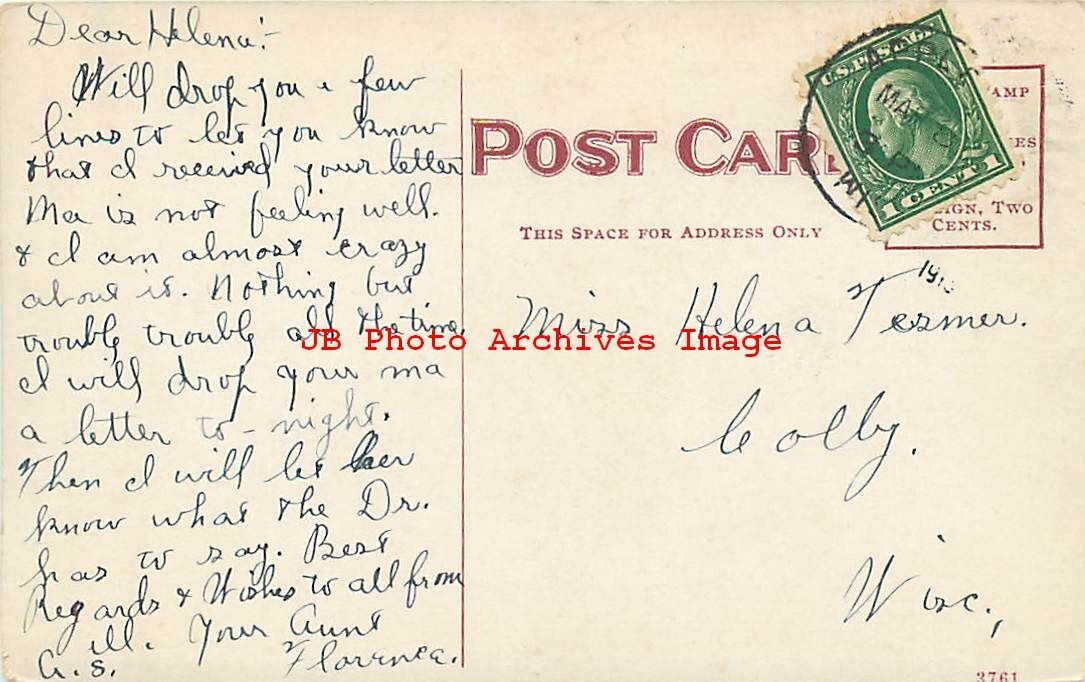 Dear Helena:-
Will drop you a few
lines to let you know
that I received your letter
Ma is not feeling well.
& I am almost crazy
about it. Nothing but
trouble trouble all the time
I will drop your ma
a letter to-night.
Then I will let her
know what the Dr.
has to say. Best
Regards & Wishes to all from
ill. Your Aunt
A.S. Florence.
POST CAR
THIS SPACE FOR ADDRESS ONLY
AMP
ES
IGN, TWO
CENTS.
U.S. POSTAGE
1 CENT 1
MAR
WIS
191
Miss Helena Tesmer.
Colby.
Wisc.,
3761
JB Photo Archives Image